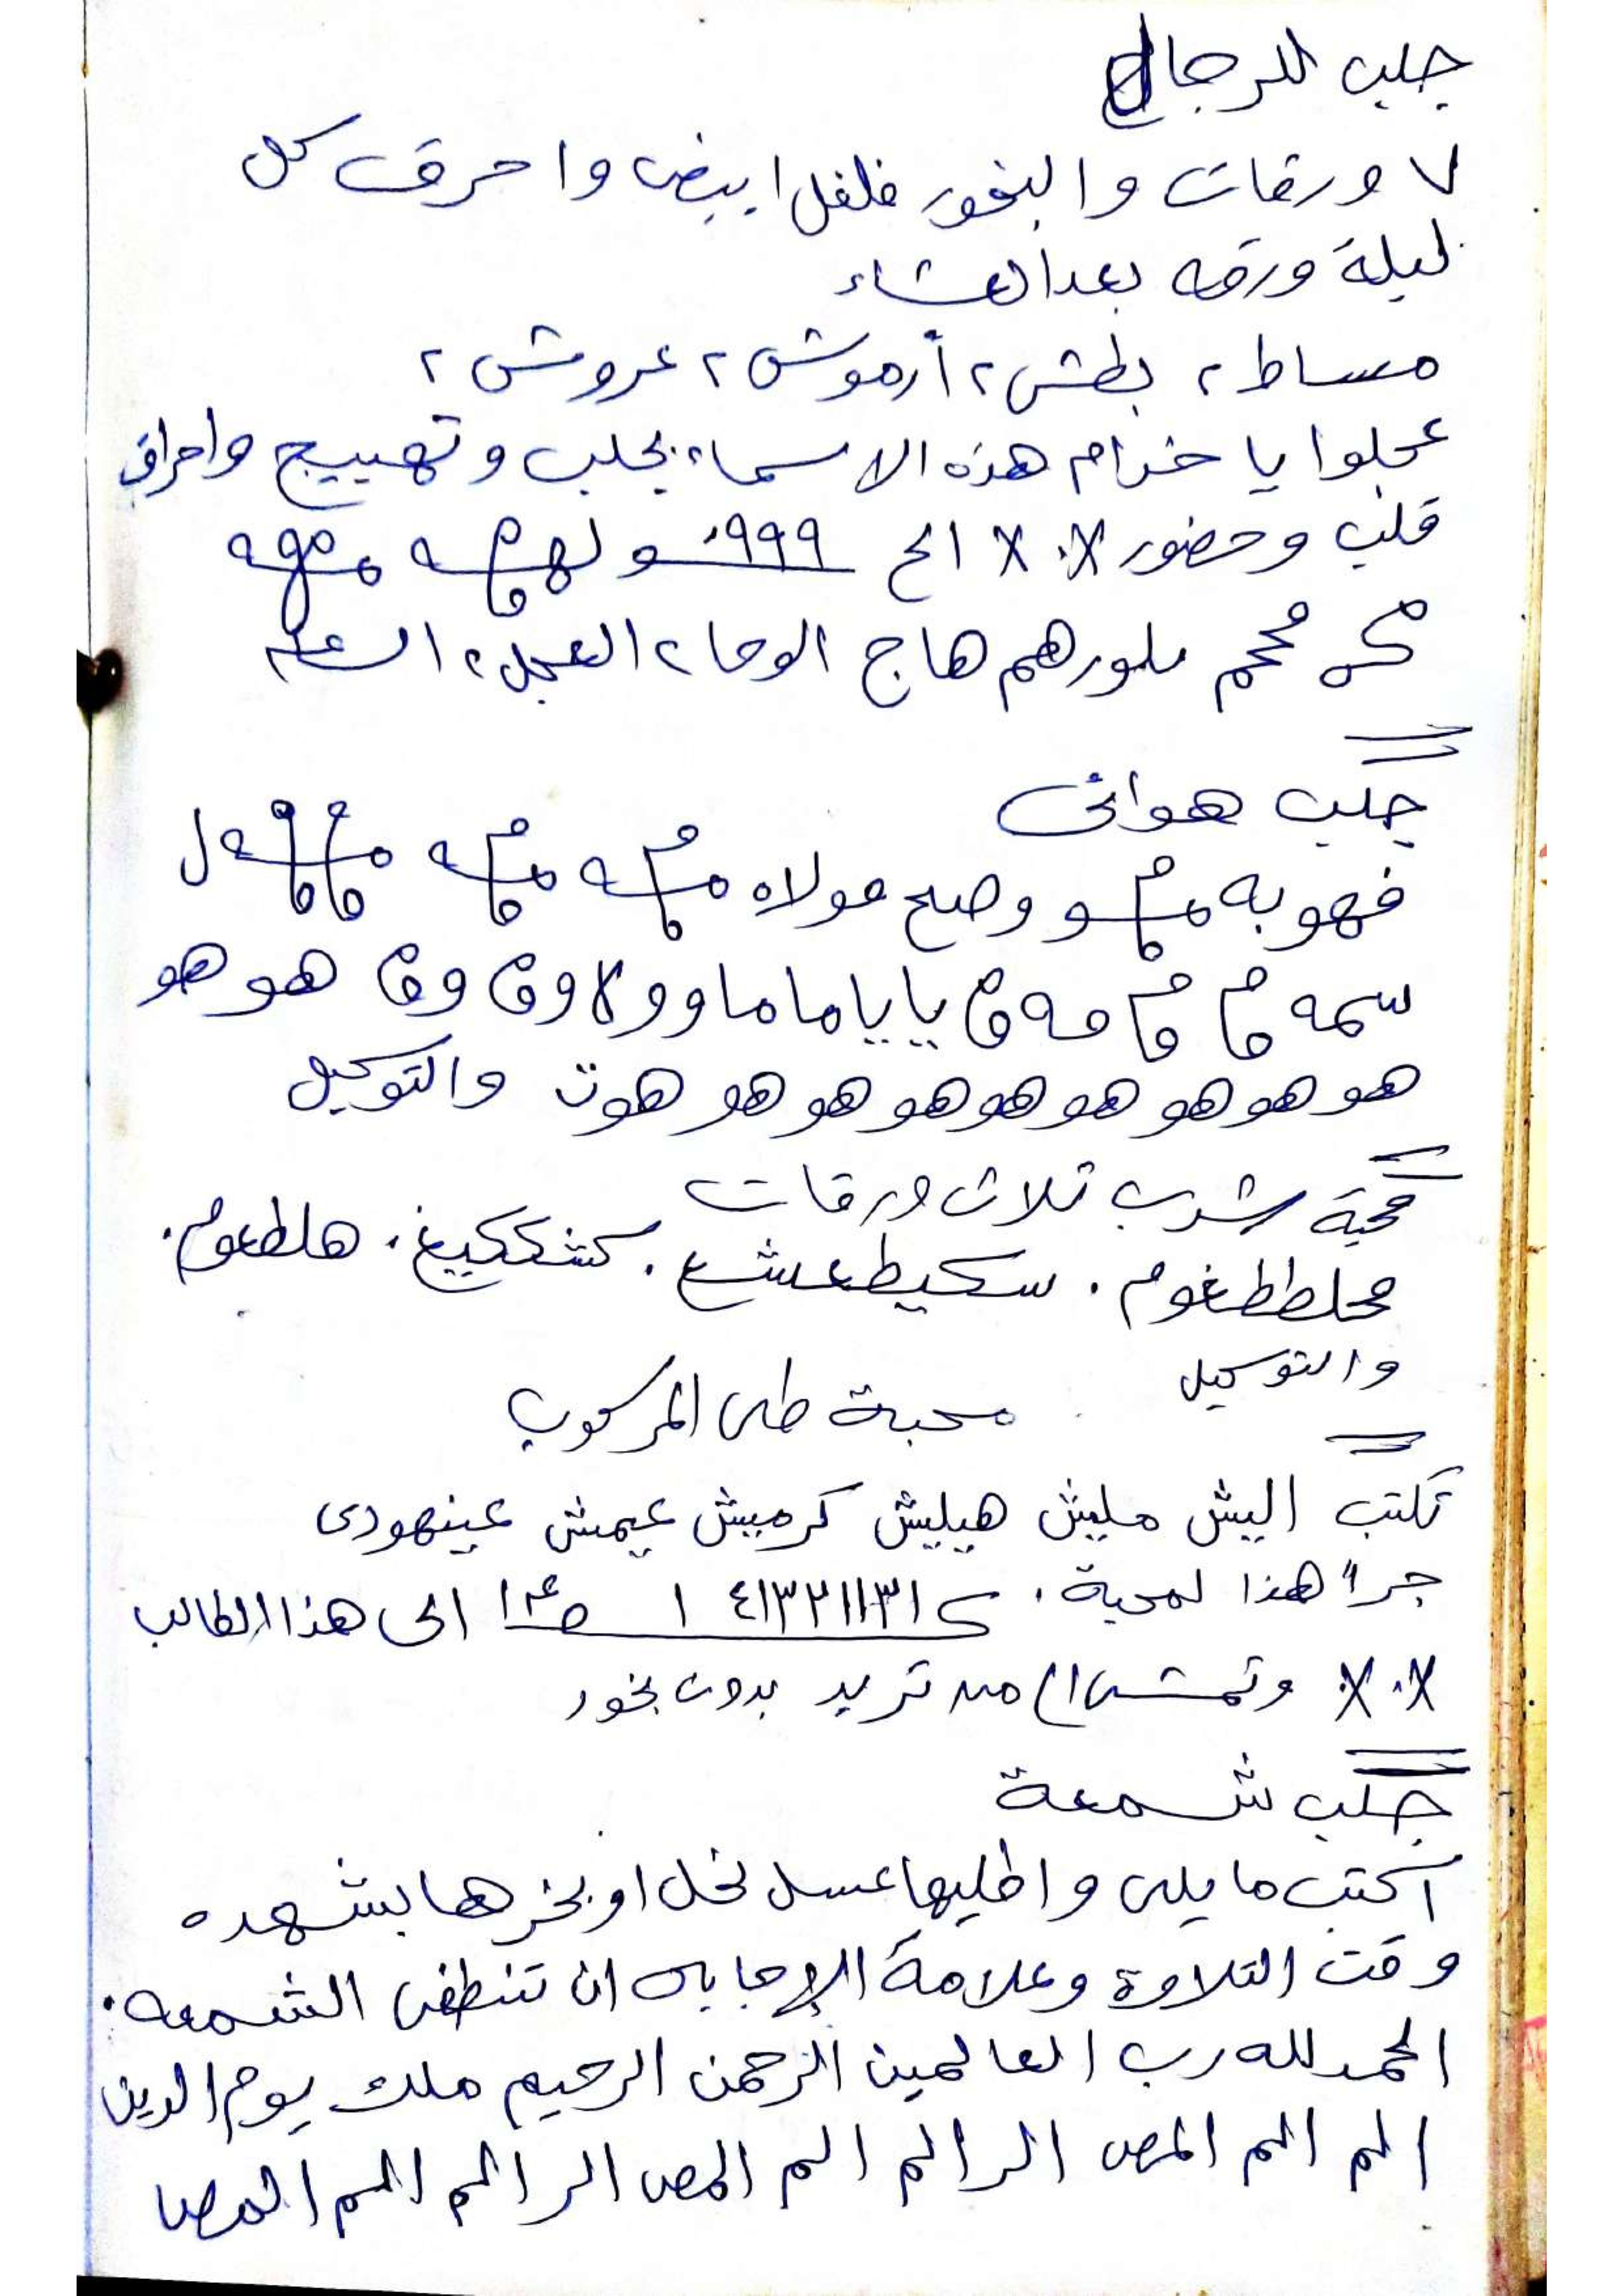 جلب للرجال
٧ ورقات والبخور فلفل ابيض واحرق كل
ليلة ورقه بعد العشاء
مساط ٢ بطش ٢ أرموش ٢ عروش ٢
عجلوا يا خدام هذه الاسماء بجلب وتهييج واحراق
قلب وحضور الخ ٩٩٩
محمم هاج الوحا ٢ العجل ٢ الساعة
جلب هوائى
فهو به وصح مولاه
سمه يا يا ما ما و و لا هو هو
هو هو هو هو هو هو هو هو هوت والتوكيل
محبة شرب ثلاث ورقات
محلططغوم . سكيطعشع . كشككيغ . هلطعوم .
والتوكيل
محبة طى المركوب
تكتب اليش مليش هيليش كرميش عيمش عينهودى
جرا هذا لمحبة . ٤١٣٢١١٣١ الى هذا الطالب
وتمشى الى من تريد بدون بخور
جلب شمعة
اكتب ما يلى واطليها عسل نخل او بخرها بشهده
وقت التلاوة وعلامة الإجابه ان تنطفى الشمعه .
الحمد لله رب العالمين الرحمن الرحيم ملك يوم الدين
الم الم المص الر الم الم المص الر الم الم المص